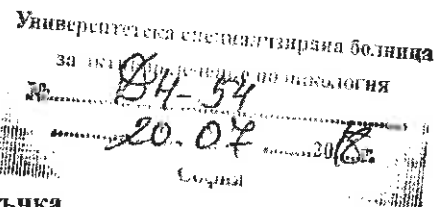 Университетска специализирана болница
за активно лечение по онкология
№ Д4-54
20.07 2018г.
София
ъчка